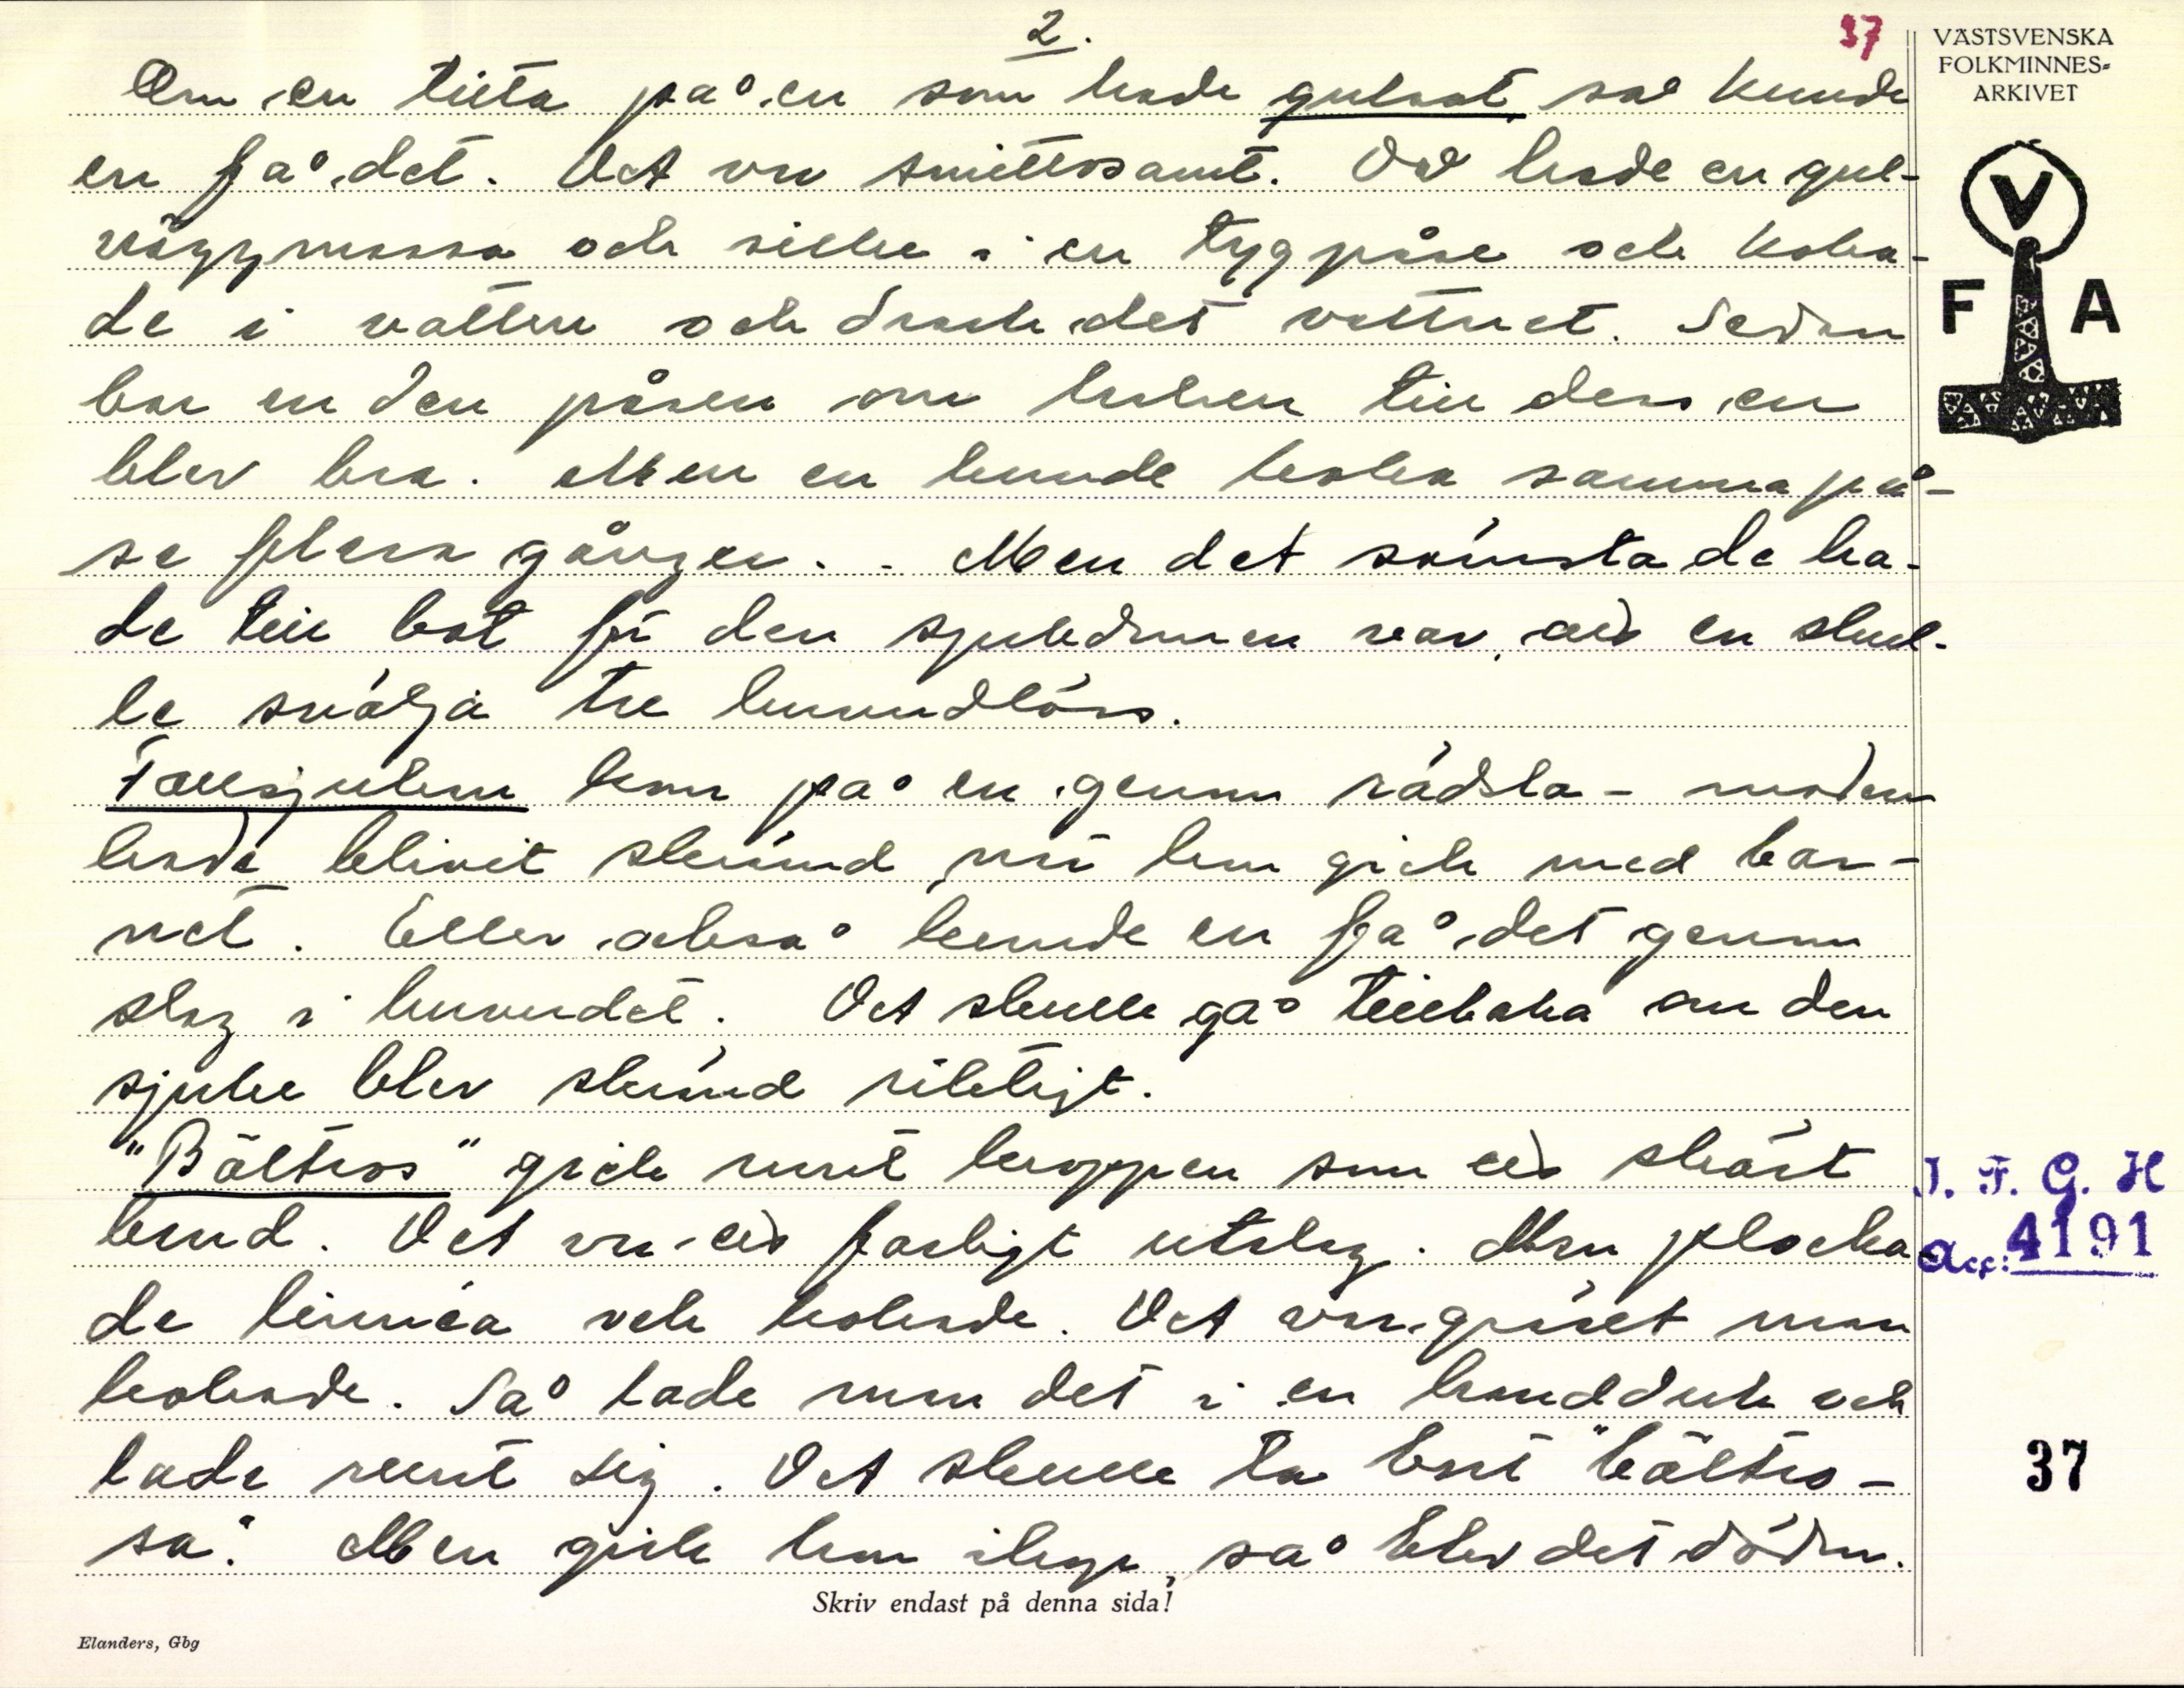 2.
37
VÄSTSVENSKA
FOLKMINNES-
ARKIVET
V
F A
Om en titta på en som hade gulsot så kunde
en få det. Det var smittosamt. Då tog en gul
väggmossa och sille i en tygpåse och koka-
de i vatten och drack det vattnet. Sedan
bar en den påsen om halsen till dess en
blev bra. Men en kunde koka samma på-
se flera gånger. - Men det sämsta de ha-
de till bot för den sjukdomen var, att en skul-
le svälja tre huvudlöss.
Fallsjukan kom på en genom rädsla - modern
hade blivit skrämd, när hon gick med bar-
net. Eller också kunde en få det genom
slag i huvudet. Det skulle gå tillbaka om den
sjuke blev skrämd riktigt.
"Bältros" gick runt kroppen som ett skärt
band. Det var ett farligt utslag. Man plocka-
de linnéa och kokade. Det var gräset man
kokade. Så lade man det i en handduk och
lade runt sig. Det skulle ta bort "bältro-
sa". Men gick hon ihop, så blev det döden.
I. F. G. H
Acc: 4191
37
Skriv endast på denna sida!
Elanders, Gbg